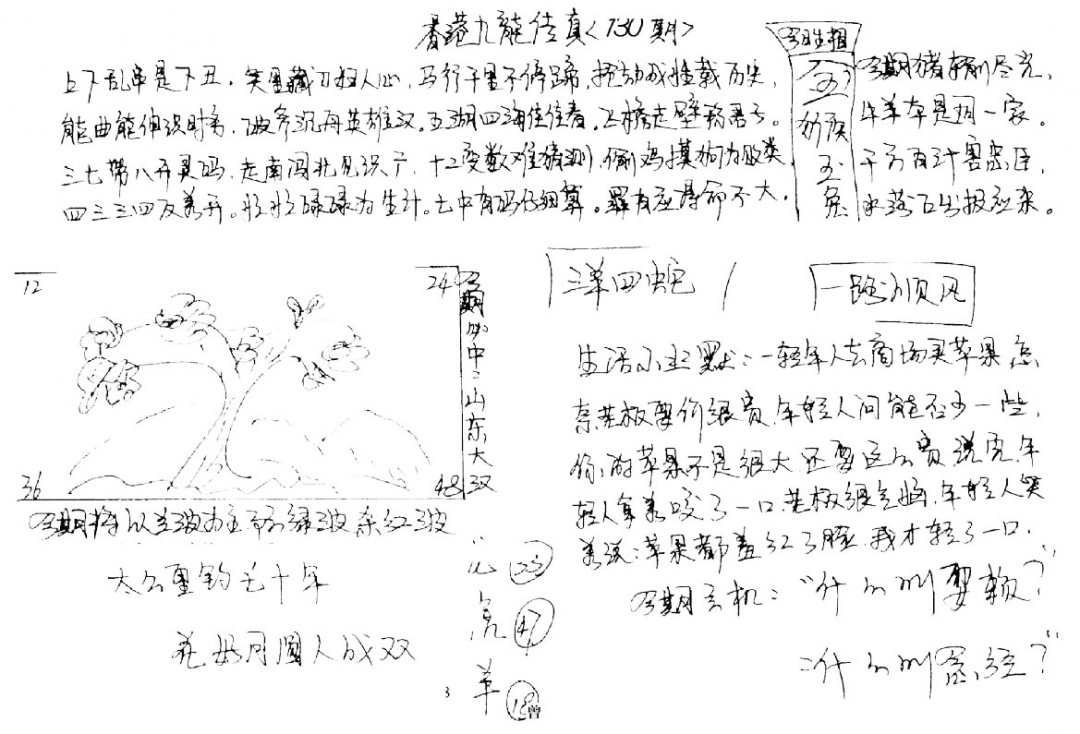 香港九龍传真<130期>
上下乱串是下丑.笑里藏刀招人心,马行千里不停蹄,
能曲能伸识时务,破斧沉舟英雄汉.五湖四海住住看.飞檐走壁称君子。
三七带八开灵码,走南闯北见识广,十二变数难猜测,偷鸡摸狗为败类
四三三四反着开。忙忙碌碌为生计。七中有码仔细算。罪有应得命不大.
今期生相
五
五
兔
今期猪羊刚尽光,
牛羊本是同一家。
千方百计害忠臣,
水落石出报应来。
12
24
36
48
今期必中三山东大汉
今期将以兰波为主 第防绿波杀红波
太公垂钓七十年
花好月圆人成双
心 23
虎 47
羊 18
三羊四蛇
一路顺风
生活小幽默:一轻年人去商场买苹果怎
奈老板要价很贵,年轻人问能否少一些,
你的苹果不是很大还要这么贵说完年
轻人拿着咬了一口.老板很气恼,年轻人笑
着说:苹果都羞红了脸.我才轻了一口.
今期玄机:“什么叫耍赖?”
:什么叫